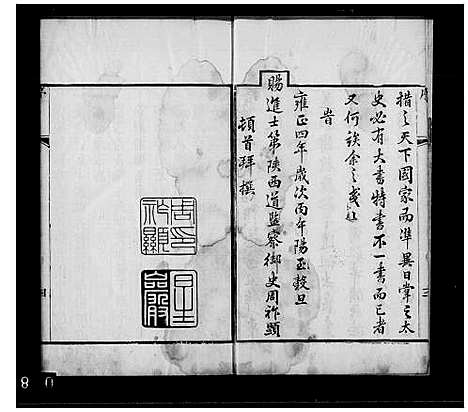 序
措之天下國家而準異日掌之太
史必有大書特書不一書而已者
又何俟余之戔
旹
雍正四年歲次丙午陽正穀旦
賜進士第陝西道監察御史周祚顯
頓首拜撰
周印
祚顯
三
8 0